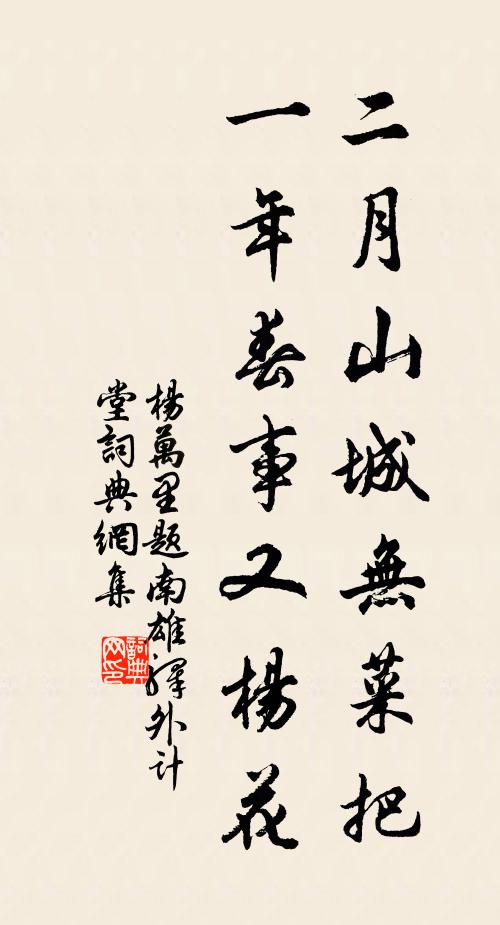 二月山城無菜把
一年春事又楊花
楊萬里題南雄驛外計
堂詞典網集
詞典網印